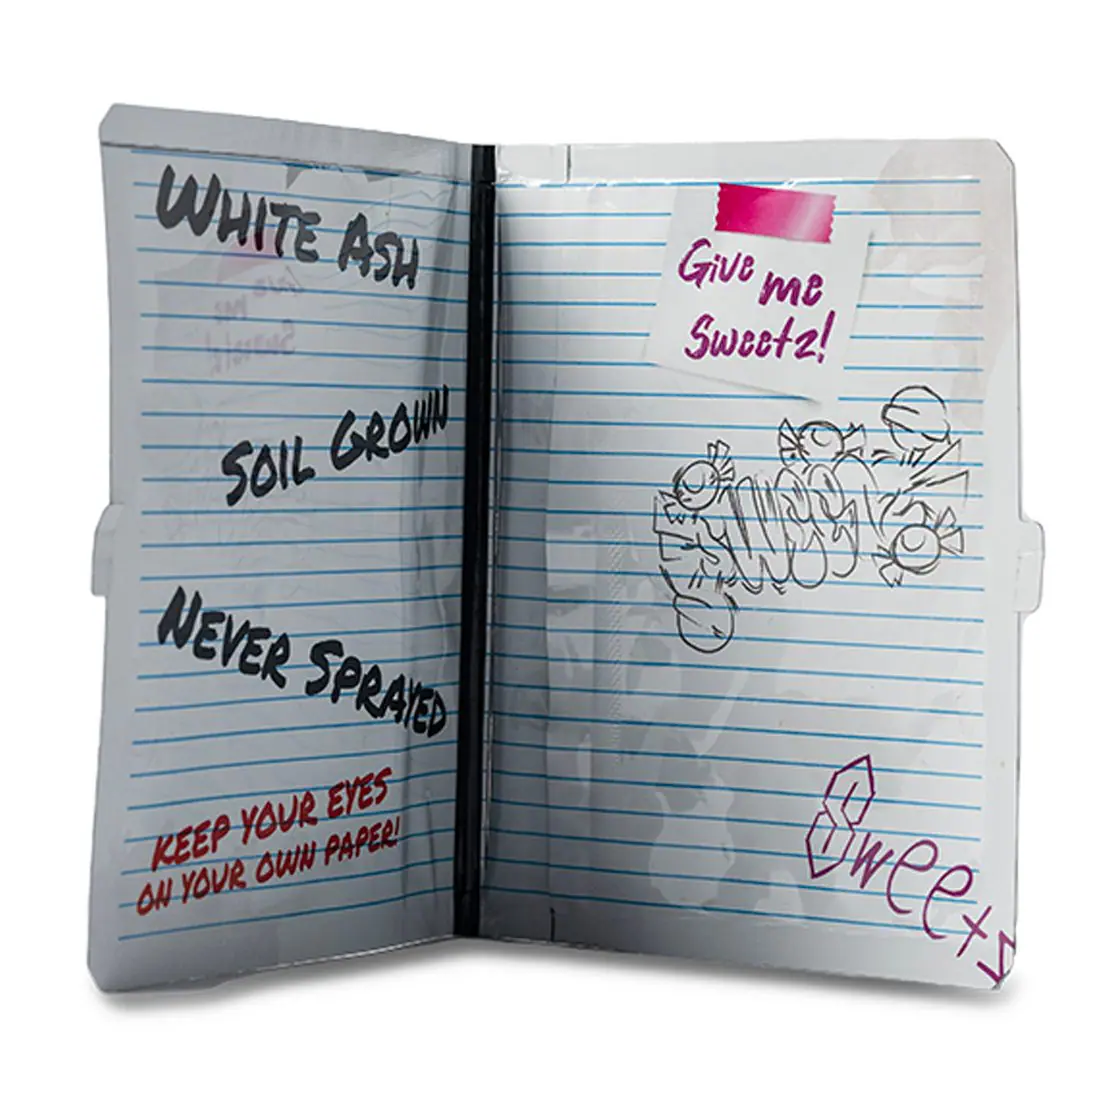 WHITE ASH
SOIL GROWN
NEVER SPRAYED
KEEP YOUR EYES
ON YOUR OWN PAPER!
Give me
Sweetz!
Sweets